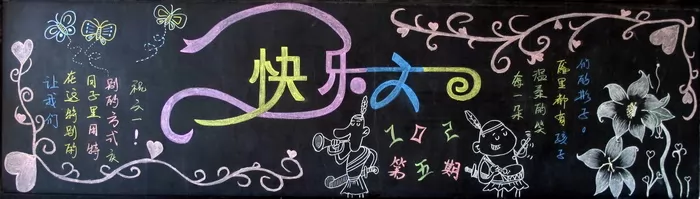 快乐六一
让我们
在这特别的
日子里用特
别的方式庆
祝六一！
102
第五期
每一朵
温柔的笑
靥里都有孩子
们的影子。